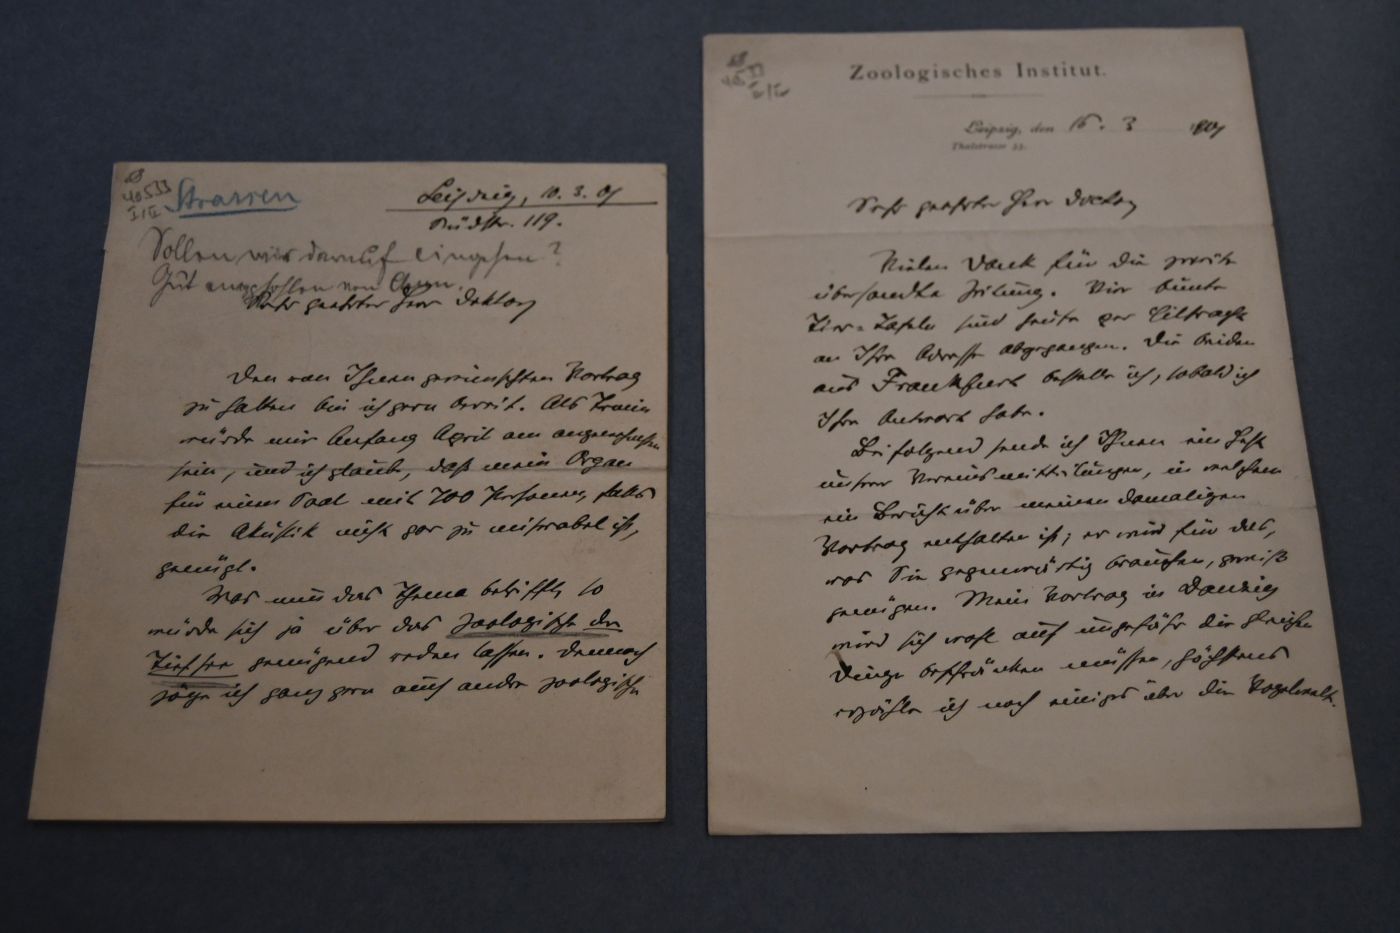 40533
I/II
Strassen
Leipzig, 10. 3. 01
Südstr. 119.
Sollen wir darauf eingehen?
Gut empfohlen von Chun.
Sehr geehrter Herr Doktor
Den von Ihnen gewünschten Vortrag
zu halten bin ich gern bereit. Als Termin
würde mir Anfang April am angenehmsten
sein, und ich glaube, daß mein Organ
für einen Saal mit 700 Personen, falls
die Akustik nicht gar zu miserabel ist,
genügt.
Was nun das Thema betrifft, so
würde sich ja über das zoologische der
Tiefsee genügend reden lassen. Dennoch
zöge ich ganz gern auch andre zoologische
Zoologisches Institut.
Leipzig, den 16. 3 1901
Thalstrasse 33.
Sehr geehrter Herr Doctor
Vielen Dank für die
übersandte Zeitung. Vier bunte
Tier-Tafeln sind heute per Eilfracht
an Ihre Adresse abgegangen. Die beiden
aus Frankfurt bestelle ich, sobald ich
Ihre Antwort habe.
Beifolgend sende ich Ihnen ein Heft
unsrer Vereinsmitteilungen, in welchem
ein Bericht über meinen damaligen
Vortrag enthalten ist; er wird für das,
was Sie gegenwärtig brauchen, gewiß
genügen. Mein Vortrag in Danzig
wird sich wohl auf ungefähr die gleichen
Dinge beschränken müssen, höchstens
erzähle ich noch einiges über die Vogelwelt.